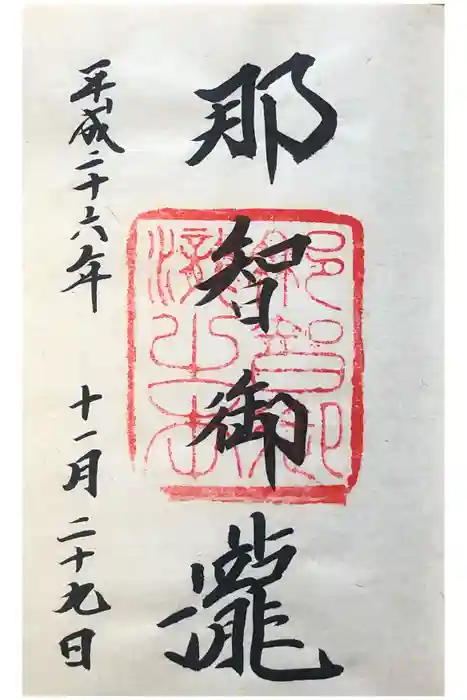 那智御瀧
平成二十六年 十一月二十九日